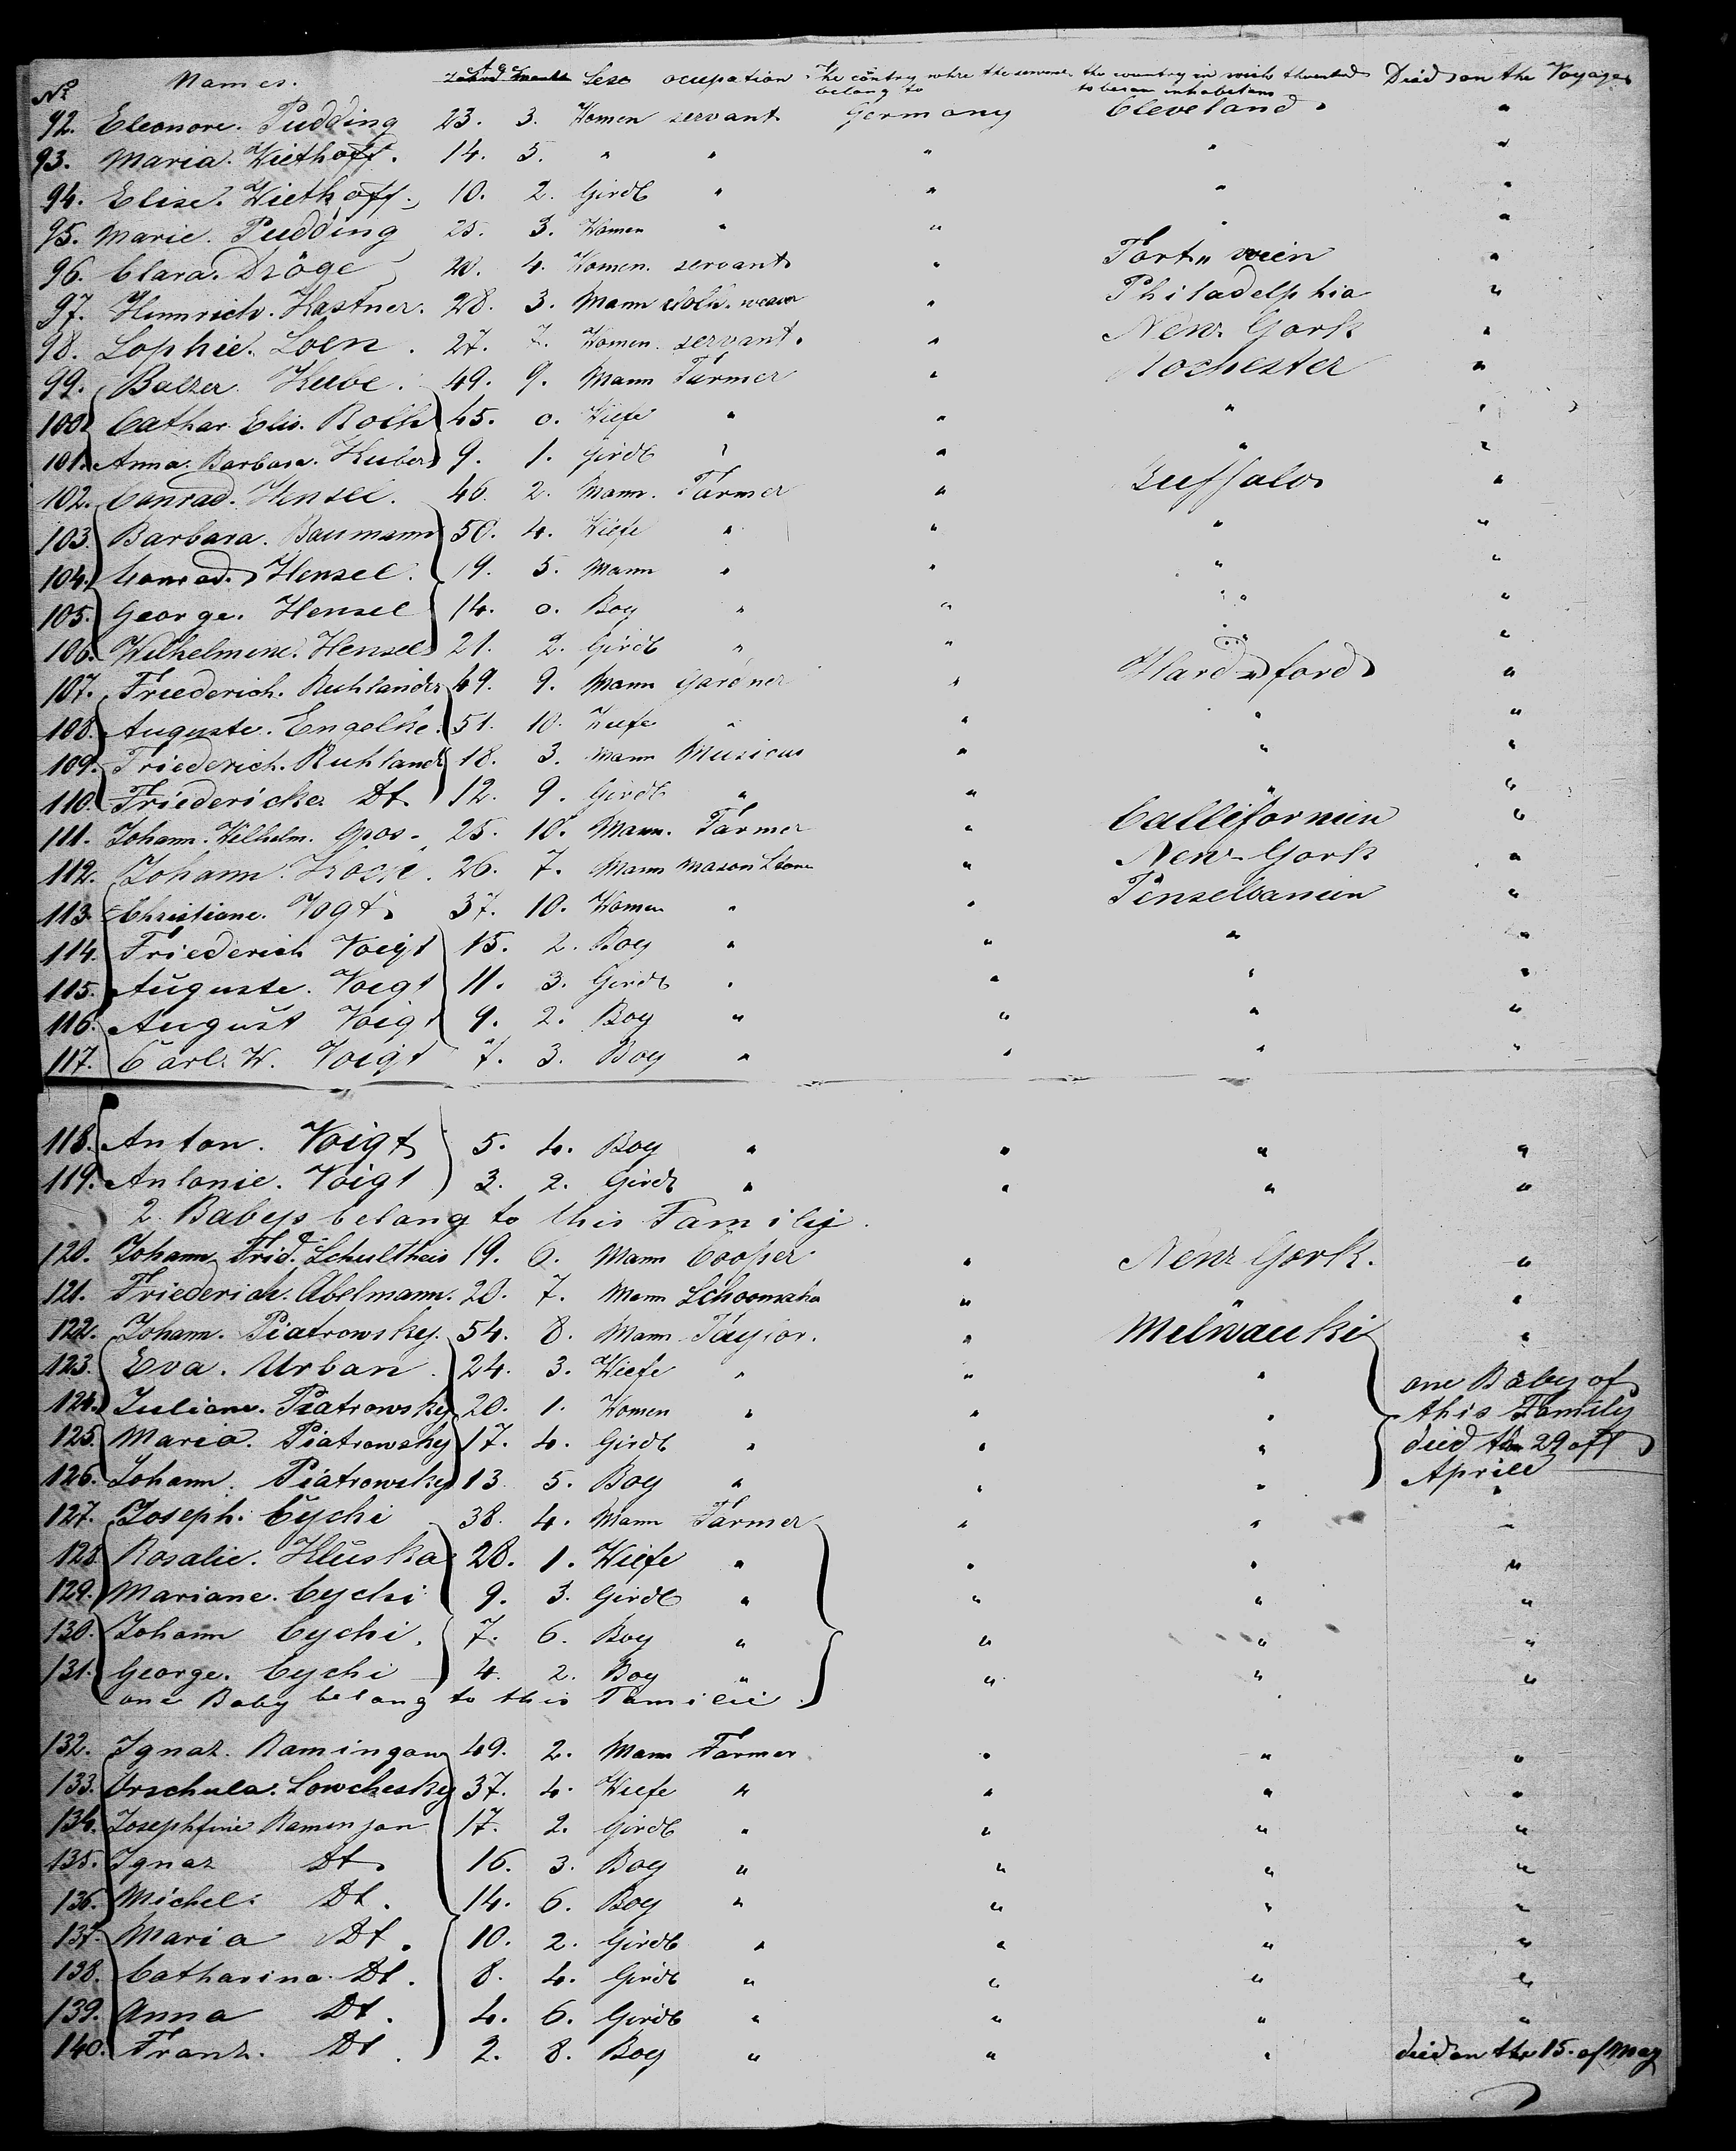 No Names. Age Sex ocupation The contry where the belong to the country in wich to becam inhabetans Died on the Voyages
92. Eleonore. Pudding 23. 3. Women servant Germany Cleveland "
93. Maria. Wiethoff. 14. 5. " " " " "
94. Elise. Wiethoff. 10. 2. Girdl " " " "
95. Marie. Pudding 25. 3. Women " " " "
96. Clara. Dröge 20. 4. Women. servant " Fort " "
97. Hinnrich. Kastner. 28. 3. Mann weaver " Philadelphia "
98. Sophie. Loen. 27. 7. Women. servant. " New York "
99. Balzer. Kube. 49. 9. Mann Farmer " Rochester "
100. Cathar. Elis. Roth 45. 0. Wiefe " " " "
101. Anna. Barbara. Kuber 9. 1. Girdl " " " "
102. Conrad. Hensel. 46. 2. Mann. Farmer " Buffalo "
103. Barbara. Baumann 50. 4. Wiefe " " " "
104. Conrad. Hensel. 19. 5. Mann " " " "
105. George. Hensel 14. 0. Boy " " " "
106. Wilhelmine. Hensel 21. 2. Girdl " " " "
107. Friederich. Ruhlander 49. 9. Mann Gardner " Hard ford "
108. Auguste. Engelke. 51. 10. Wiefe " " " "
109. Friederich. Ruhland 18. 3. Mann Musicus " " "
110. Friedericke Dt. 12. 9. Girdl " " " "
111. Johann. Wilhelm. Gpos. 25. 10. Mann. Farmer " Callifornien "
112. Johann. 26. 7. Mann Mason Stone " New-York "
113. Christiane. Vogt. 37. 10. Women " " Penselvanien "
114. Friederich Voigt 15. 2. Boy " " " "
115. Auguste. Voigt 11. 3. Girdl " " " "
116. August Voigt 9. 2. Boy " " " "
117. Carl. W. Voigt 7. 3. Boy " " " "
118. Anton. Voigt 5. 4. Boy " " " "
119. Antonie. Voigt 3. 2. Girdl " " " "
2 Babeys belong to this Familij.
120. Johann Frid. Schultheis 19. 6. Mann Cooper " New York. "
121. Friederich. Abelmann. 20. 7. Mann Schoomaka " " "
122. Johann. Piatrowsky. 54. 8. Mann Taylor. " Milwauki "
123. Eva. Urban. 24. 3. Wiefe " " " one Baby of
124. Juliane. Piatrowsky 20. 1. Women " " " this Family
125. Maria. Piatrowsky 17. 4. Girdl " " " died the 29 off
126. Johann. Piatrowsky 13 5. Boy " " " Aprill
127. Joseph. Cychi 38. 4. Mann Farmer " " "
128. Rosalie. Kluska 28. 1. Wiefe " " " "
129. Mariane. Cychi 9. 3. Girdl " " " "
130. Johann Cychi. 7. 6. Boy " " " "
131. George. Cychi 4. 2. Boy " " " "
one Baby belong to this Familie.
132. Ignaz. Ramingan 49. 2. Mann Farmer " " "
133. Urschula. Lowchesky 37. 4. Wiefe " " " "
134. Josephfine Ramenjan 17. 2. Girdl " " " "
135. Ignaz Dt. 16. 3. Boy " " " "
136. Michel. Dt. 14. 6. Boy " " " "
137. Maria Dt. 10. 2. Girdl " " " "
138. Catharina. Dt. 8. 4. Girdl " " " "
139. Anna Dt. 4. 6. Girdl " " " "
140. Franz. Dt. 2. 8. Boy " " " died on the 15. of May